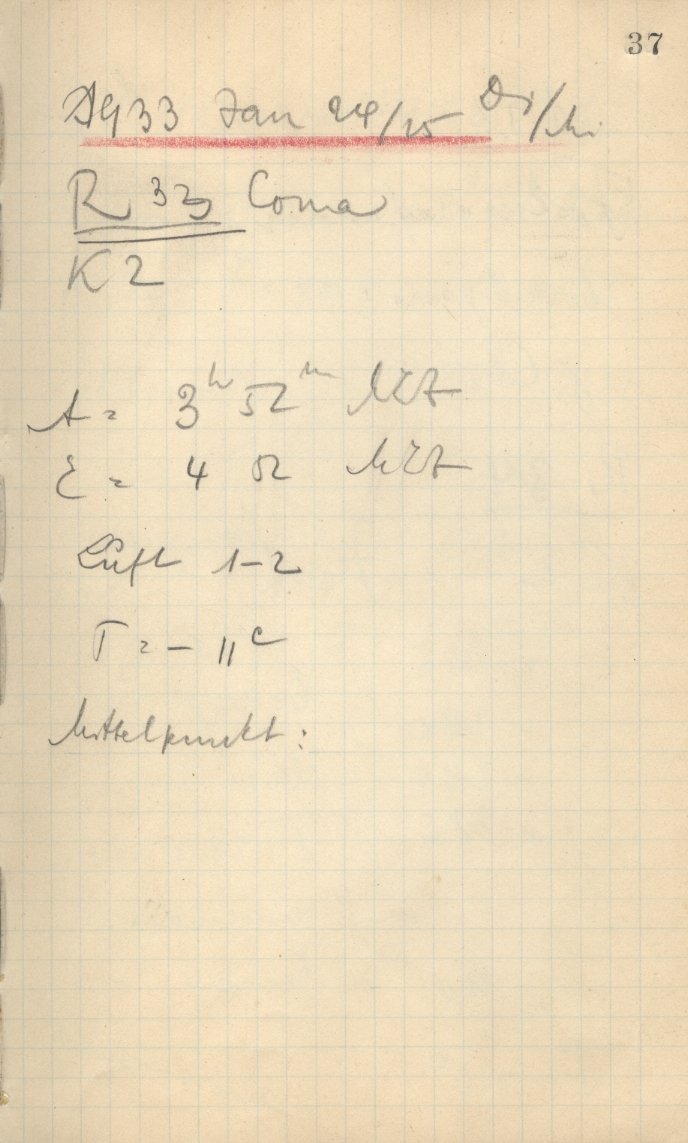 37
1933 Jan 24/25 Di/Mi
R 33 Coma
K 2
A = 3h 52m MEZ
E = 4 52 MEZ
Luft 1-2
T = - 11 C
Mittelpunkt: